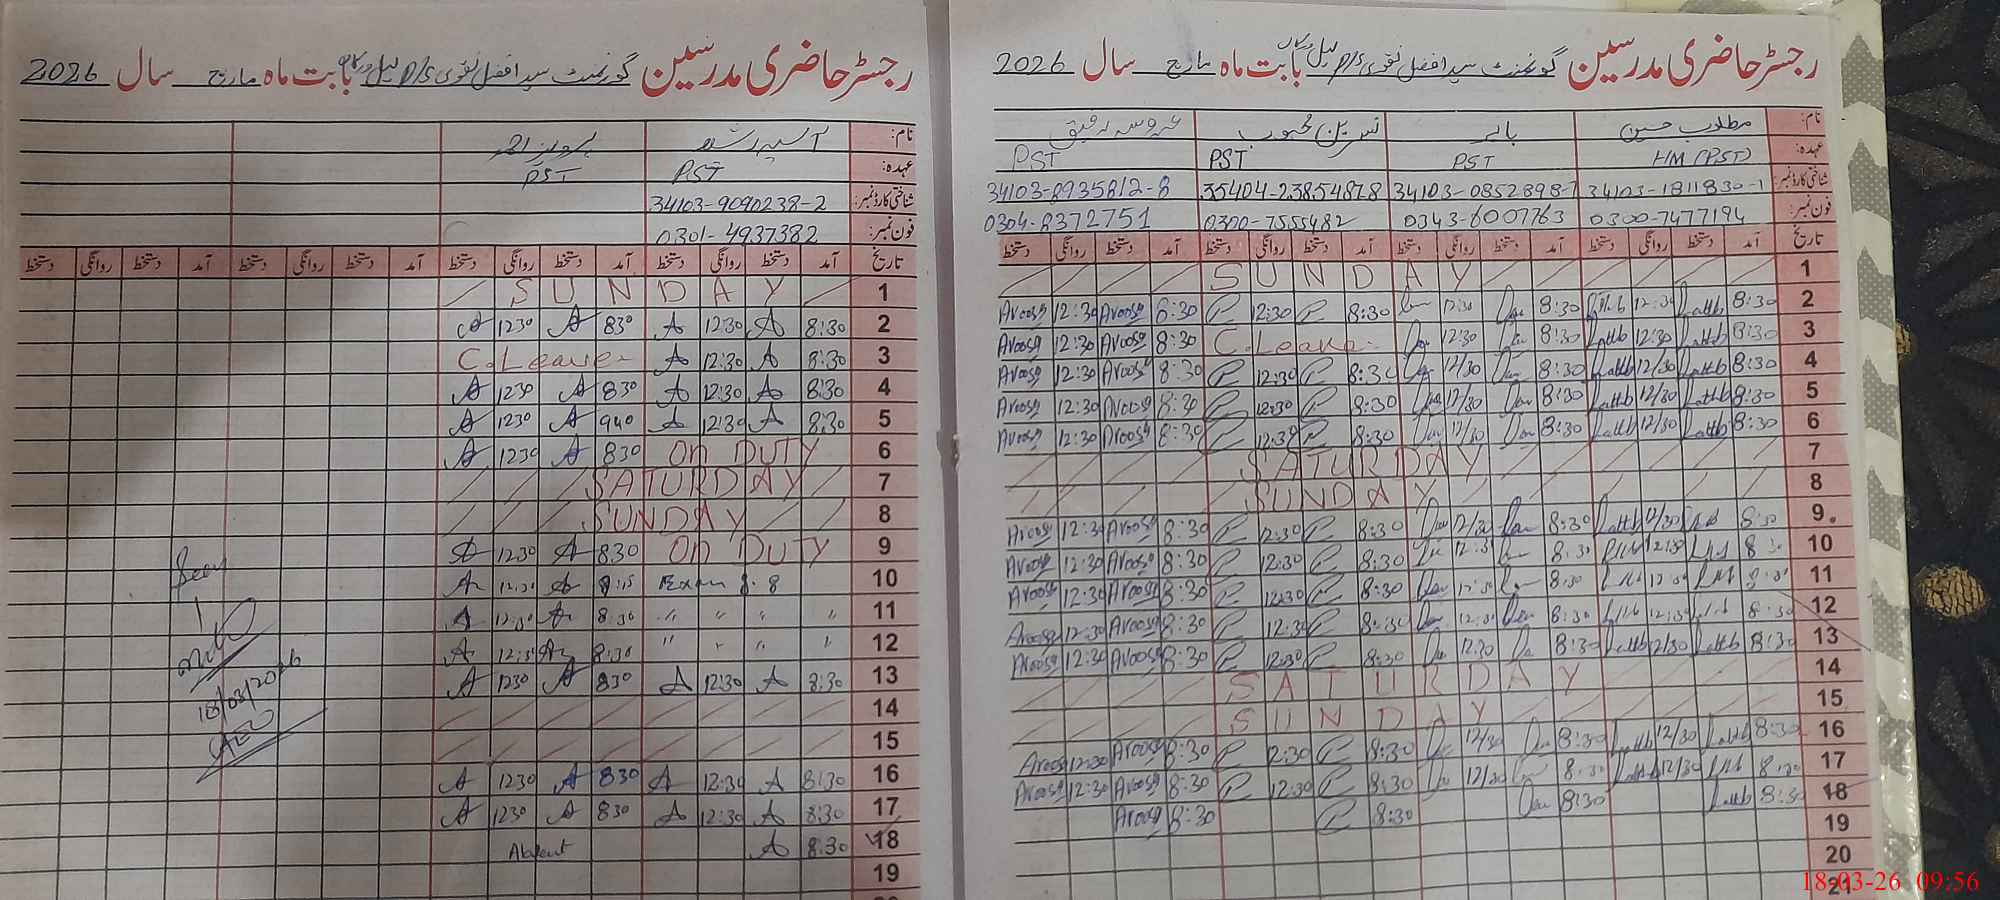 رجسٹر حاضری مدرسین گورنمنٹ سید افضل نقوی P/S بابت ماہ مارچ سال 2026
نام: آسیہ
عہدہ: PST PST
شناختی کارڈ نمبر: 34103-9090238-2
فون نمبر: 0301-4937382
تاریخ آمد دستخط روانگی دستخط آمد دستخط روانگی دستخط آمد دستخط روانگی دستخط آمد دستخط روانگی دستخط
SUNDAY 1
A 1230 A 830 A 12:30 A 8:30 2
C.Leave A 12:30 A 8:30 3
A 1230 A 830 A 12:30 A 8:30 4
A 1230 A 940 A 12:30 A 8:30 5
A 1230 A 830 On DUTY 6
SATURDAY 7
SUNDAY 8
A 1230 A 830 On DUTY 9
A 12:30 A 8:15 Exam 8.8 10
A 12:30 A 8:30 " " " " 11
A 12:30 A 8:30 " " " " 12
A 1230 A 830 A 12:30 A 8:30 13
14
15
A 1230 A 830 A 12:30 A 8:30 16
A 1230 A 830 A 12:30 A 8:30 17
Absent A 8:30 18
19
Seen
18/03/2026
AEO
رجسٹر حاضری مدرسین گورنمنٹ سید افضل نقوی P/S بابت ماہ مارچ سال 2026
نام: مطلوب حسین بابر نسرین محبوب عروسہ رفیق
عہدہ: HM (PST) PST PST PST
شناختی کارڈ نمبر: 34103-1811830-1 34103-0852898-1 35404-2385487-8 34103-8935812-8
فون نمبر: 0300-7477194 0343-6007763 0300-7555482 0304-8372751
تاریخ آمد دستخط روانگی دستخط آمد دستخط روانگی دستخط آمد دستخط روانگی دستخط آمد دستخط روانگی دستخط
SUNDAY 1
Aroosa 12:30 Aroosa 8:30 12:30 8:30 12/30 8:30 12:30 8:30 2
Aroosa 12:30 Aroosa 8:30 C.Leave 12/30 8:30 12:30 8:30 3
Aroosa 12:30 Aroosa 8:30 12:30 8:30 12/30 8:30 12/30 8:30 4
Aroosa 12:30 Aroosa 8:30 12:30 8:30 12/30 8:30 12/30 8:30 5
Aroosa 12:30 Aroosa 8:30 12:30 8:30 12/30 8:30 12/30 8:30 6
SATURDAY 7
SUNDAY 8
Aroosa 12:30 Aroosa 8:30 12:30 8:30 12/30 8:30 12/30 8:30 9
Aroosa 12:30 Aroosa 8:30 12:30 8:30 12:30 8:30 12:30 8:30 10
Aroosa 12:30 Aroosa 8:30 12:30 8:30 12:30 8:30 12:30 8:30 11
Aroosa 12:30 Aroosa 8:30 12:30 8:30 12:30 8:30 12:30 8:30 12
Aroosa 12:30 Aroosa 8:30 12:30 8:30 12:30 8:30 12/30 8:30 13
SATURDAY 14
SUNDAY 15
Aroosa 12:30 Aroosa 8:30 12:30 8:30 12/30 8:30 12/30 8:30 16
Aroosa 12:30 Aroosa 8:30 12:30 8:30 12/30 8:30 12/30 8:30 17
Aroosa 8:30 8:30 8:30 8:30 18
19
20
21
18-03-26 09:56